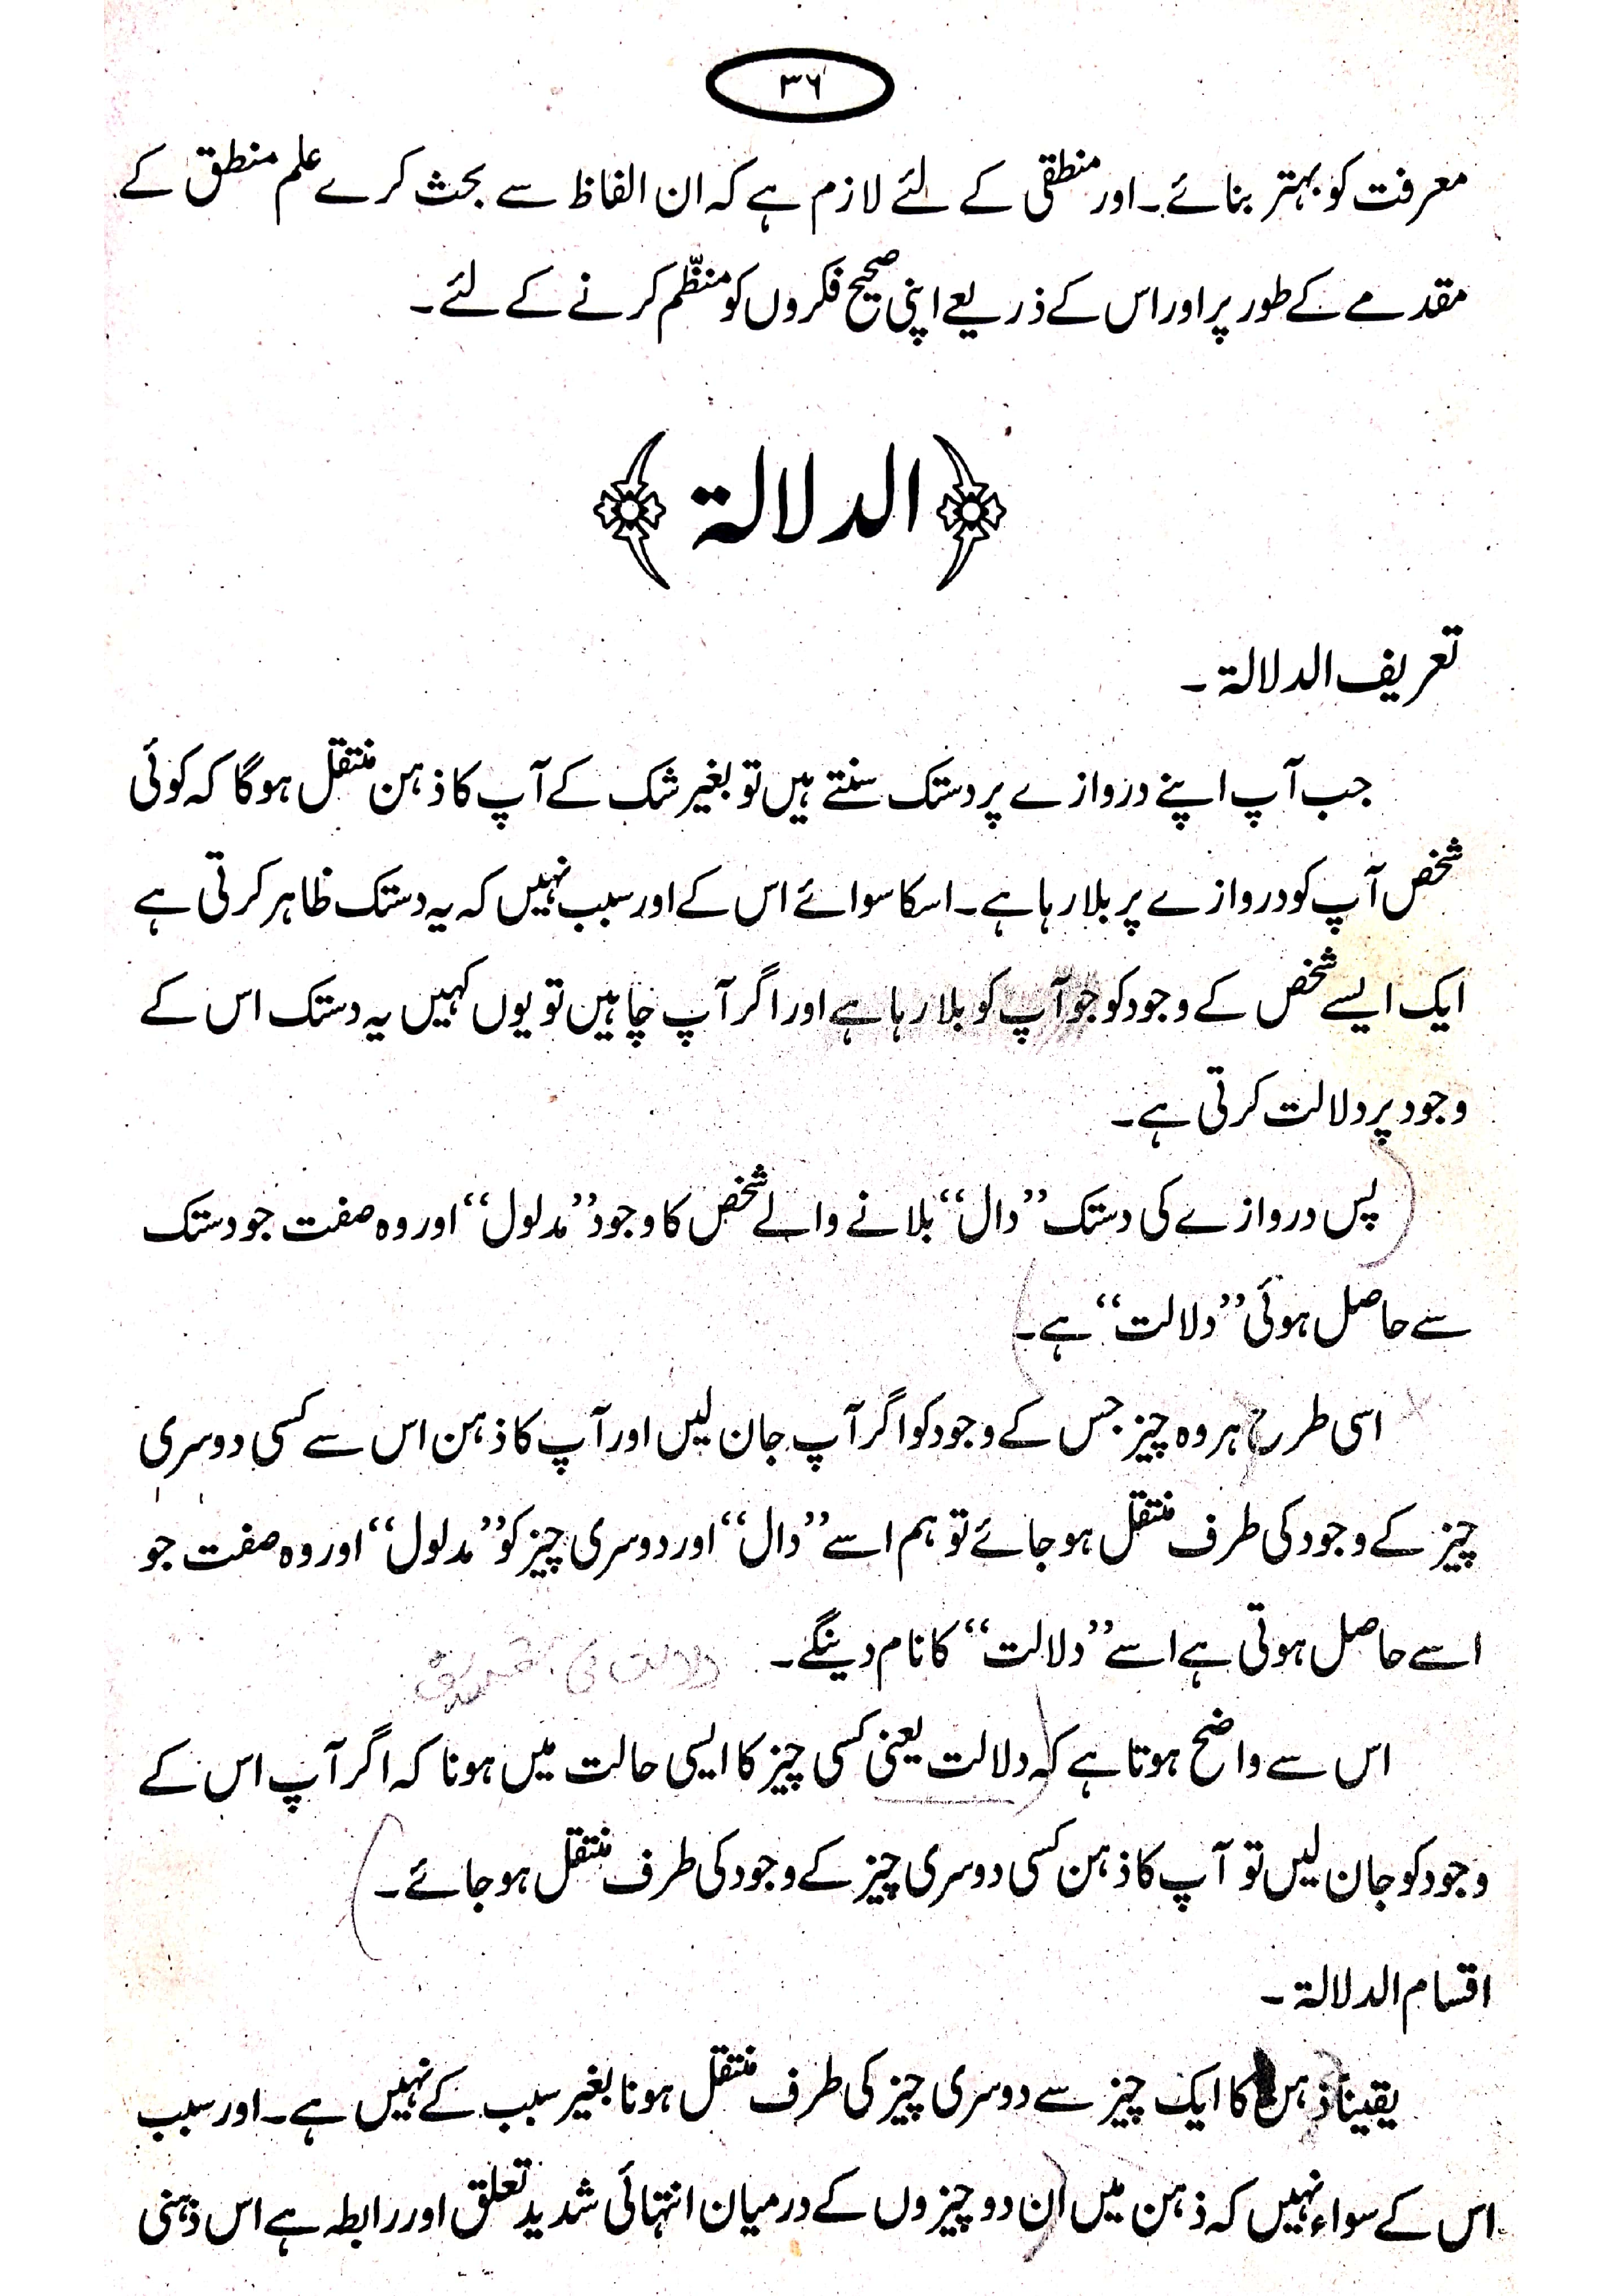 ۳۶
معرفت کو بہتر بنائے۔ اور منطقی کے لئے لازم ہے کہ ان الفاظ سے بحث کرے علم منطق کے
مقدمے کے طور پر اور اس کے ذریعے اپنی صحیح فکروں کو منظّم کرنے کے لئے۔
﴿الدلالة﴾
تعریف الدلالة ۔
جب آپ اپنے دروازے پر دستک سنتے ہیں تو بغیر شک کے آپ کا ذہن منتقل ہوگا کہ کوئی
شخص آپ کو دروازے پر بلا رہا ہے۔ اسکا سوائے اس کے اور سبب نہیں کہ یہ دستک ظاہر کرتی ہے
ایک ایسے شخص کے وجود کو جو آپ کو بلا رہا ہے اور اگر آپ چاہیں تو یوں کہیں یہ دستک اس کے
وجود پر دلالت کرتی ہے۔
پس دروازے کی دستک ’’دال‘‘ بلانے والے شخص کا وجود ’’مدلول‘‘ اور وہ صفت جو دستک
سے حاصل ہوئی ’’دلالت‘‘ ہے۔
اسی طرح ہر وہ چیز جس کے وجود کو اگر آپ جان لیں اور آپ کا ذہن اس سے کسی دوسری
چیز کے وجود کی طرف منتقل ہو جائے تو ہم اسے ’’دال‘‘ اور دوسری چیز کو ’’مدلول‘‘ اور وہ صفت جو
اسے حاصل ہوتی ہے اسے ’’دلالت‘‘ کا نام دینگے۔ دلالت کی تعریف
اس سے واضح ہوتا ہے کہ دلالت یعنی کسی چیز کا ایسی حالت میں ہونا کہ اگر آپ اس کے
وجود کو جان لیں تو آپ کا ذہن کسی دوسری چیز کے وجود کی طرف منتقل ہو جائے۔
اقسام الدلالة ۔
یقینا ذہن کا ایک چیز سے دوسری چیز کی طرف منتقل ہونا بغیر سبب کے نہیں ہے۔ اور سبب
اس کے سواء نہیں کہ ذہن میں ان دو چیزوں کے درمیان انتہائی شدید تعلق اور رابطہ ہے اس ذہنی